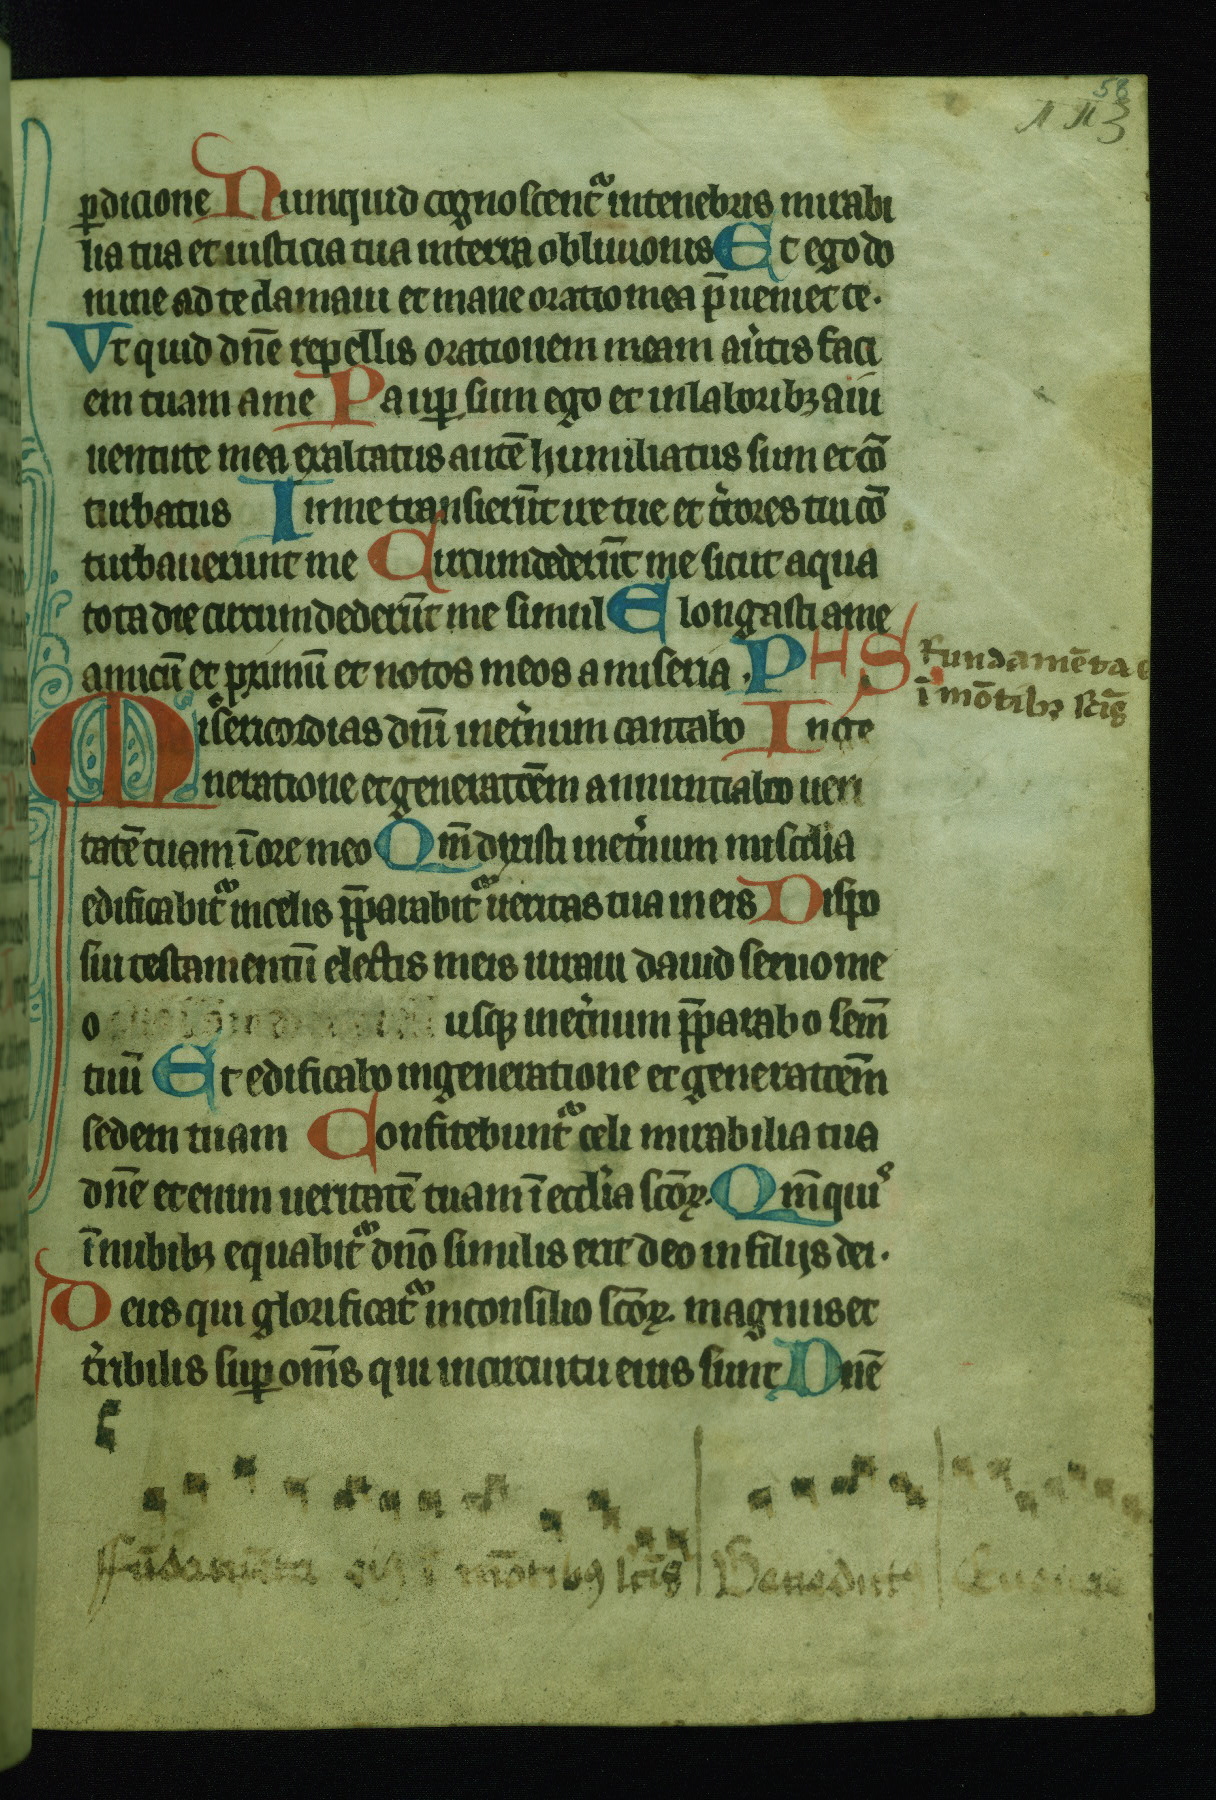 58
113
ꝑdicione Numquid cognoscent᷑ intenebris mirabi
lia tua et iusticia tua interra obliuionis Et ego do
mine ad te clamaui et mane oratio mea p̄ueniet te.
Vt quid dn̄e repellis orationem meam au̓tis faci
em tuam ame Paup̱ sum ego et inlaboribꝫ aiu
uentute mea exaltatus autē humiliatus sum et cō
turbatus In me transierūt ire tue et t̓rores tui cō
turbauerunt me Circumdederūt me sicut aqua
tota die circumdederūt me simul Elongasti ame
amicū et proximū et notos meos a miseria. PS
Fundamēta e
ī mōtibꝫ sc̄is
Misericordias dn̄i inet̓num cantabo In ge
neratione et generatōem annuntiabo ueri
tatē tuam ī ore meo Qm̄ dixisti inet̓num misc̓dia
edificabit᷑ incelis p̄parabit᷑ ueritas tua in eis Dispo
sui testamentū electis meis iuraui dauid seruo me
o usqꝫ inet̓num p̄parabo sem̄
tuū Et edificabo ingeneratione et generatōem
sedem tuam Confitebunt᷑ celi mirabilia tua
dn̄e et enim ueritatē tuam ī eccl̓ia sc̄oꝝ. Qm̄ quis
ī nubibꝫ equabit᷑ dn̄o similis erit deo in filijs dei.
Deus qui glorificat᷑ inconsilio sc̄oꝝ. magnus et
t̓ribilis sup̱ om̄s qui incircuitu eius sunt Dn̄e
ffūdamēta ei9 ī mōtibus sc̄is Benedicta Euouae